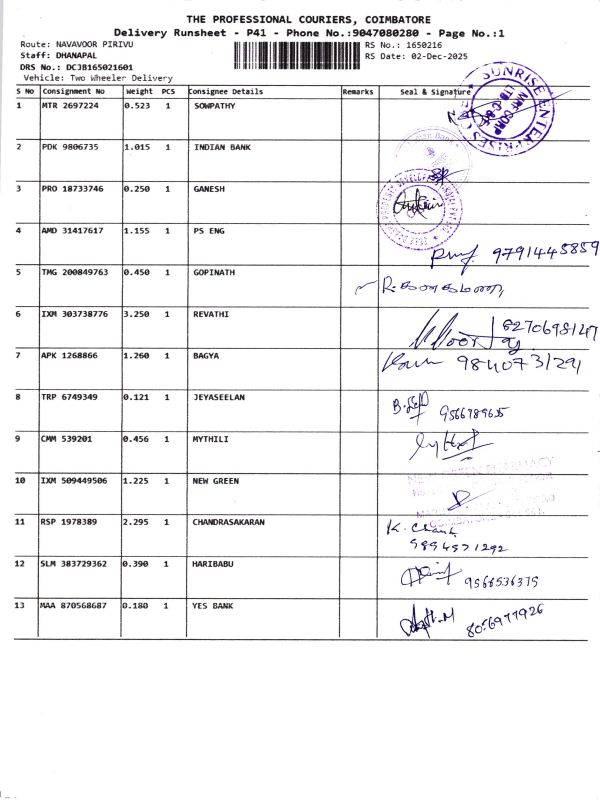 THE PROFESSIONAL COURIERS, COIMBATORE
Delivery Runsheet - P41 - Phone No.:9047080280 - Page No.:1
Route: NAVAVOOR PIRIVU RS No.: 1650216
Staff: DHANAPAL RS Date: 02-Dec-2025
DRS No.: DCJB165021601
Vehicle: Two Wheeler Delivery
S No Consignment No Weight PCS Consignee Details Remarks Seal & Signature
1 MTR 2697224 0.523 1 SOWPATHY
SUNRISE ENTERPRISES
2 PDK 9806735 1.015 1 INDIAN BANK
3 PRO 18733746 0.250 1 GANESH
4 AMD 31417617 1.155 1 PS ENG
9791445859
5 TMG 200849763 0.450 1 GOPINATH
6 IXM 303738776 3.250 1 REVATHI
6270698147
7 APK 1268866 1.260 1 BAGYA
9840731291
8 TRP 6749349 0.121 1 JEYASEELAN
9566789635
9 CMM 539201 0.456 1 MYTHILI
10 IXM 509449506 1.225 1 NEW GREEN
11 RSP 1978389 2.295 1 CHANDRASAKARAN
9894571292
12 SLM 383729362 0.390 1 HARIBABU
9566536375
13 MAA 870568687 0.180 1 YES BANK
8056977926